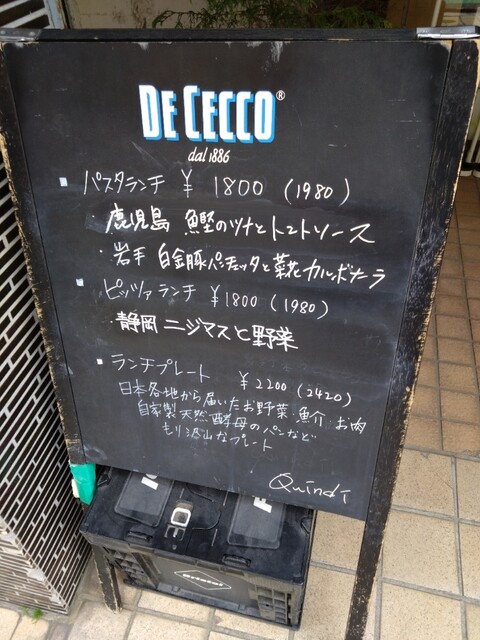 DE CECCO®
dal 1886
パスタランチ ¥ 1800 (1980)
・鹿児島 鰹のツナとトマトソース
・岩手 白金豚パンチェッタと菜花カルボナーラ
ピッツァランチ ¥1800 (1980)
・静岡 ニジマスと野菜
ランチプレート ¥2200 (2420)
日本各地から届いたお野菜、魚介、お肉
自家製天然酵母のパンなど
もり沢山なプレート
Quindi
Bristol